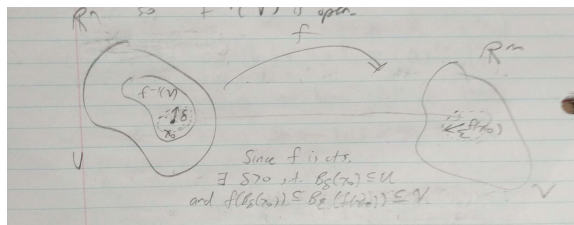 Rⁿ so f⁻¹(V) is open.
f
Rᵐ
f⁻¹(V)
δ
x₀
f(x₀)
ε
U
V
Since f is cts.
∃ δ>0, st. B_δ(x₀) ⊆ U
and f(B_δ(x₀)) ⊆ B_ε(f(x₀)) ⊆ V.